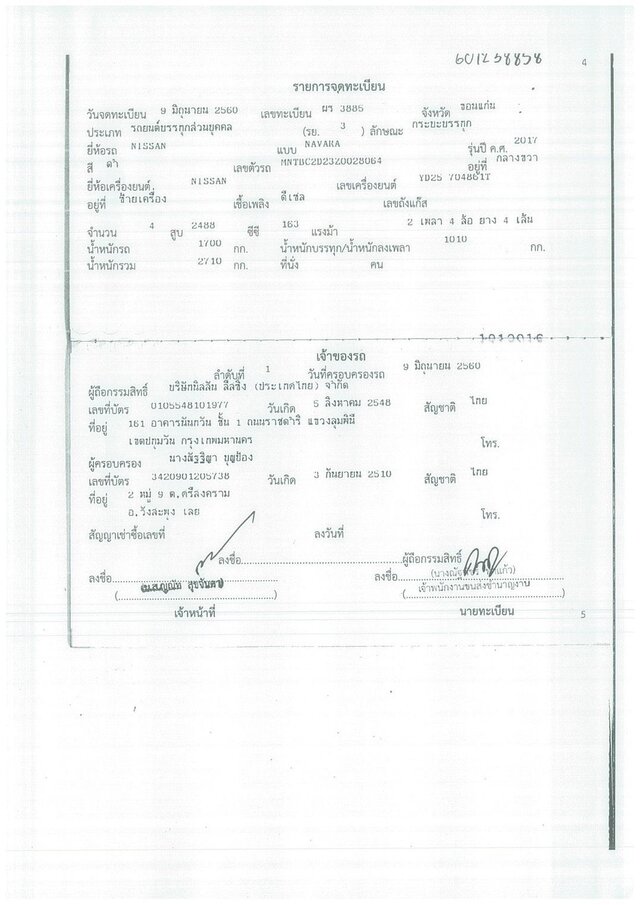 601258858
4
รายการจดทะเบียน
วันจดทะเบียน 9 มิถุนายน 2560 เลขทะเบียน ผร 3885 จังหวัด ขอนแก่น
ประเภท รถยนต์บรรทุกส่วนบุคคล (รย. 3 ) ลักษณะ กระบะบรรทุก
ยี่ห้อรถ NISSAN แบบ NAVARA รุ่นปี ค.ศ. 2017
สี ดำ เลขตัวรถ MNTBC2D23Z0028064 อยู่ที่ กลางขวา
ยี่ห้อเครื่องยนต์ NISSAN เลขเครื่องยนต์ YD25 704861T
อยู่ที่ ซ้ายเครื่อง เชื้อเพลิง ดีเซล เลขถังแก๊ส
จำนวน 4 สูบ 2488 ซีซี 163 แรงม้า 2 เพลา 4 ล้อ ยาง 4 เส้น
น้ำหนักรถ 1700 กก. น้ำหนักบรรทุก/น้ำหนักลงเพลา 1010 กก.
น้ำหนักรวม 2710 กก. ที่นั่ง คน
เจ้าของรถ
ลำดับที่ 1 วันที่ครอบครองรถ 9 มิถุนายน 2560
ผู้ถือกรรมสิทธิ์ บริษัทนิสสัน ลีสซิ่ง (ประเทศไทย) จำกัด
เลขที่บัตร 0105548101977 วันเกิด 5 สิงหาคม 2548 สัญชาติ ไทย
ที่อยู่ 161 อาคารนันทวัน ชั้น 1 ถนนราชดำริ แขวงลุมพินี
เขตปทุมวัน กรุงเทพมหานคร โทร.
ผู้ครอบครอง
เลขที่บัตร 3420901205738 วันเกิด 3 กันยายน 2510 สัญชาติ ไทย
ที่อยู่ 2 หมู่ 9 ต.ศรีสงคราม
อ.วังสะพุง เลย โทร.
สัญญาเช่าซื้อเลขที่ ลงวันที่
ลงชื่อ ผู้ถือกรรมสิทธิ์
ลงชื่อ ลงชื่อ
เจ้าพนักงานขนส่งชำนาญงาน
เจ้าหน้าที่ นายทะเบียน
5